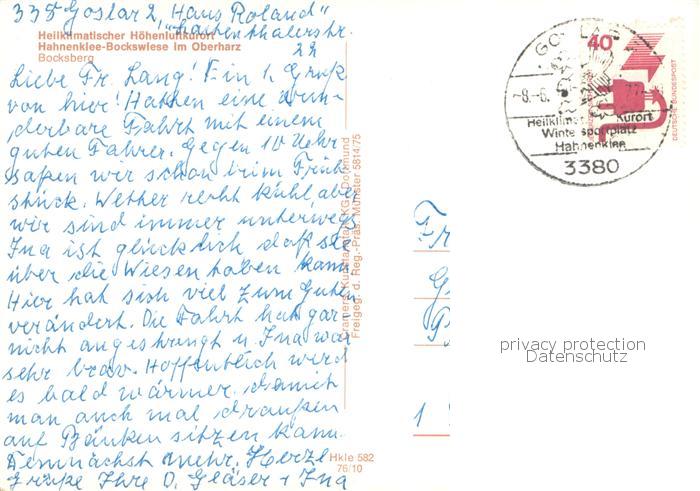 335 Goslar 2, "Haus Roland"
Lautenthalerstr.
22
Heilklimatischer Höhenluftkurort
Hahnenklee-Bockswiese im Oberharz
Bocksberg
Liebe Fr. Lang! Ein 1. Gruß
von hier! Hatten eine wun-
derbare Fahrt mit einem
guten Fahrer. Gegen 10 Uehr
saßen wir schon beim Früh
stück. Wetter recht kühl, aber
wir sind immer unterwegs
Ina ist glücklich daß sie
über die Wiesen toben kann.
Hier hat sich viel zum Guten
verändert. Die Fahrt hat gar
nicht angestrengt u. Ina war
sehr brav. Hoffentlich wird
es bald wärmer, damit
man auch mal draußen
auf Bänken sitzen kann.
Demnächst mehr. Herzl.
Grüße Ihre O. Gläser + Ina
Cramers Kunstanstalt KG, Dortmund
Freigeg. d. Reg.-Präs. Münster 5814/75
Hkle 582
76/10
GOSLAR
-8.-6.
77-
Heilklimat. Kurort
Wintersportplatz
Hahnenklee
3380
40
DEUTSCHE BUNDESPOST
Fr
G
1
privacy protection
Datenschutz